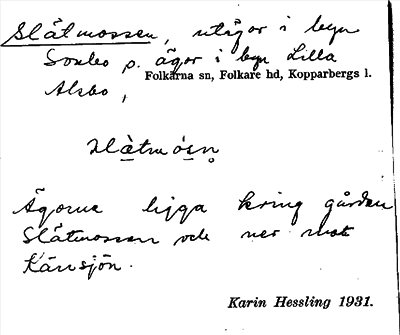 Slåtmossen, utägor i byn
Sonbo o. ägor i byn Lilla
Folkärna sn, Folkare hd, Kopparbergs l.
Alsbo,
Ägorna ligga kring gården
Slåtmossen och ner mot
Kärrsjön.
Karin Hessling 1931.